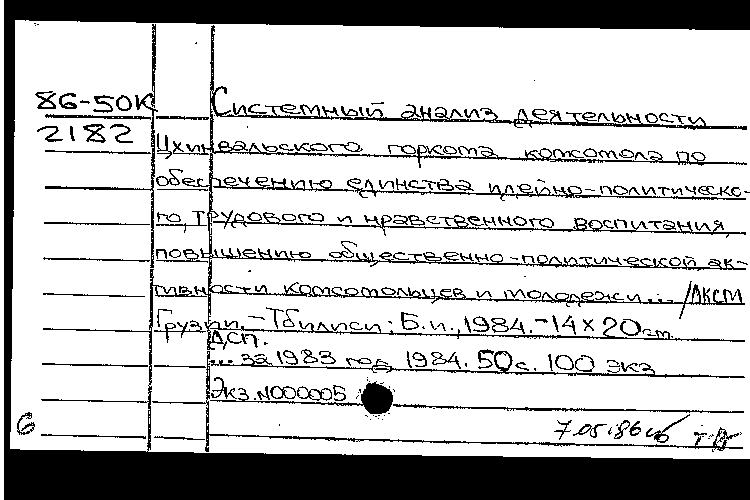 86-50К Системный анализ деятельности
2182 Цхинвальского горкома комсомола по
обеспечению единства идейно-политическо-
го, трудового и нравственного воспитания,
повышению общественно-политической ак-
тивности комсомольцев и молодежи... /ЛКСМ
Грузии. – Тбилиси: Б.и., 1984. – 14 × 20 см.
ДСП.
... за 1983 год 1984. 50 с. 100 экз
Экз. N000005
6 7.05.86